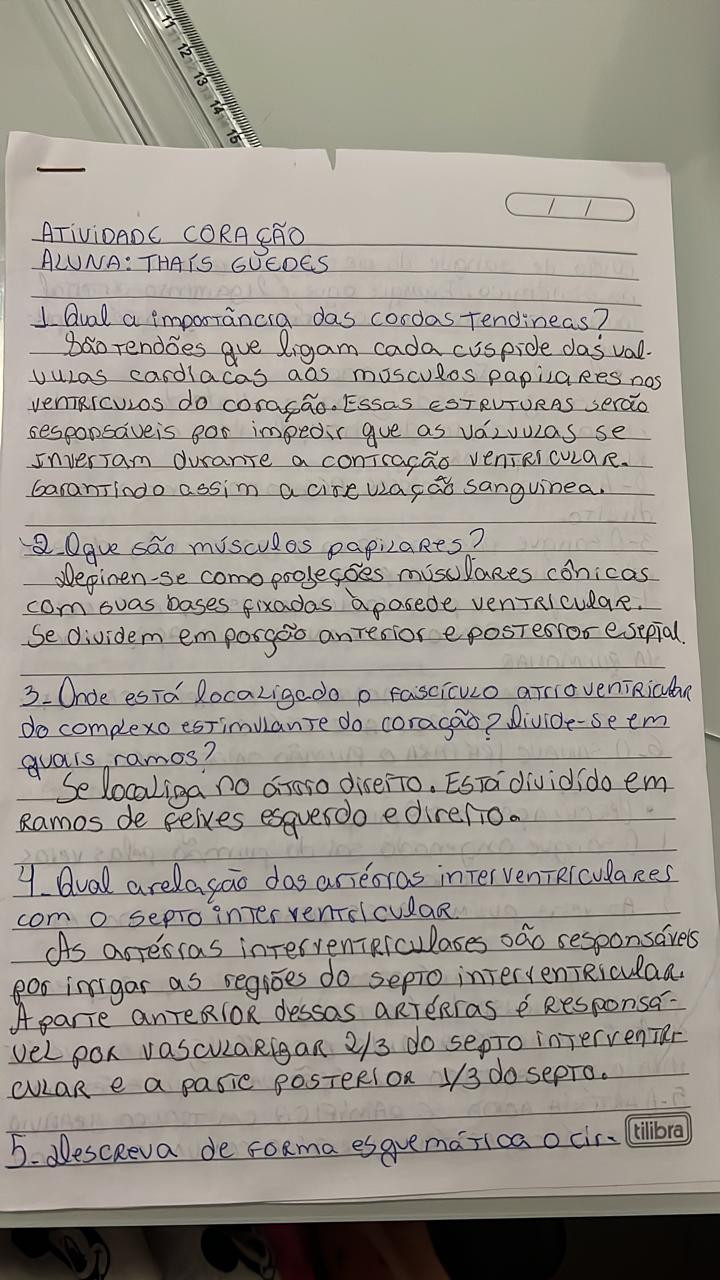 11 12 13 14 15
/ /
ATIVIDADE CORAÇÃO
ALUNA: THAÍS GUEDES
1. Qual a importância das cordas tendineas?
São tendões que ligam cada cúspide das val-
vulas cardíacas aos músculos papilares nos
ventrículos do coração. Essas estruturas serão
responsáveis por impedir que as válvulas se
invertam durante a contração ventricular.
Garantindo assim a circulação sanguínea.
2. Oque são músculos papilares?
Definen-se como projeções músculares cônicas
com suas bases fixadas à parede ventricular.
Se dividem em porção anterior e posterior e septal.
3. Onde está localizado o fascículo atrioventricular
do complexo estimulante do coração? Divide-se em
quais ramos?
Se localiza no átrio direito. Está dividido em
ramos de feixes esquerdo e direito.
4. Qual a relação das artérias interventriculares
com o septo interventricular
As artérias interventriculares são responsáveis
por irrigar as regiões do septo interventricular.
A parte anterior dessas artérias é responsá-
vel por vascularizar 2/3 do septo interventri-
cular e a parte posterior 1/3 do septo.
5. Descreva de forma esquemática o cir-
tilibra